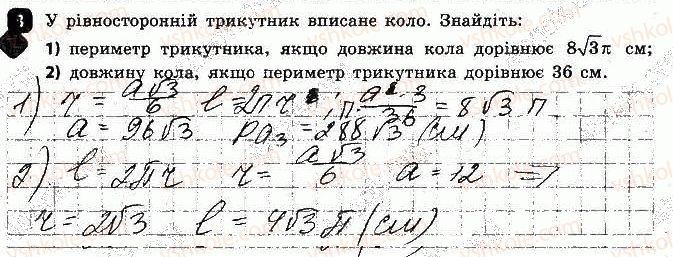 3 У рівносторонній трикутник вписане коло. Знайдіть:
1) периметр трикутника, якщо довжина кола дорівнює 8√3π см;
2) довжину кола, якщо периметр трикутника дорівнює 36 см.
1) r = a√3/6 l = 2πr ; π a² 3/36 = 8√3 π
a = 96√3 Pa₃ = 288√3 (см)
2) l = 2πr r = a√3/6 a = 12 =>
r = 2√3 l = 4√3 π (см)